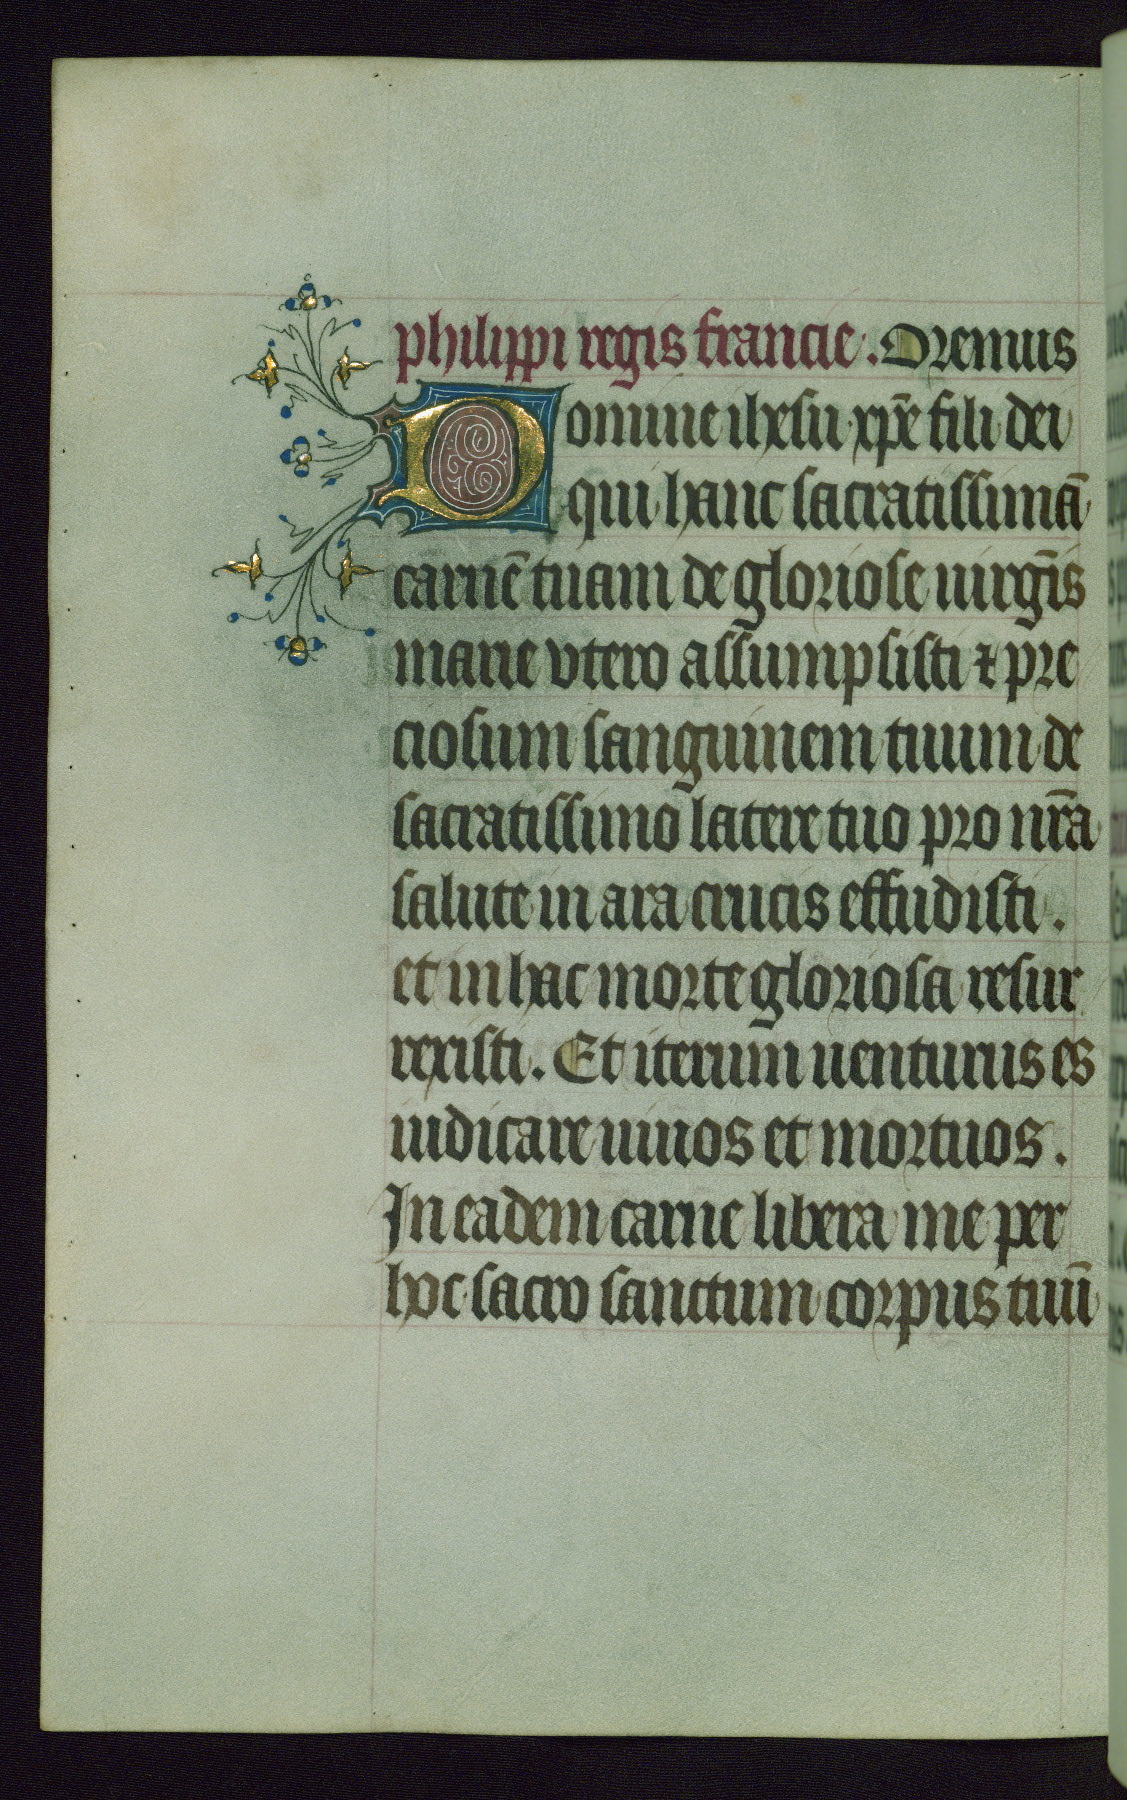 philippi regis francie. Oremus
Domine ihesu xp̄e fili dei
qui hanc sacratissimā
carnē tuam de gloriose uirgīs
marie vtero assumpsisti ⁊ pre
ciosum sanguinem tuum de
sacratissimo latere tuo pro nr̄a
salute in ara crucis effudisti.
et in hac morte gloriosa resur
rexisti. Et iterum uenturus es
iudicare uiuos et mortuos.
In eadem carne libera me per
hoc sacro sanctum corpus tuū